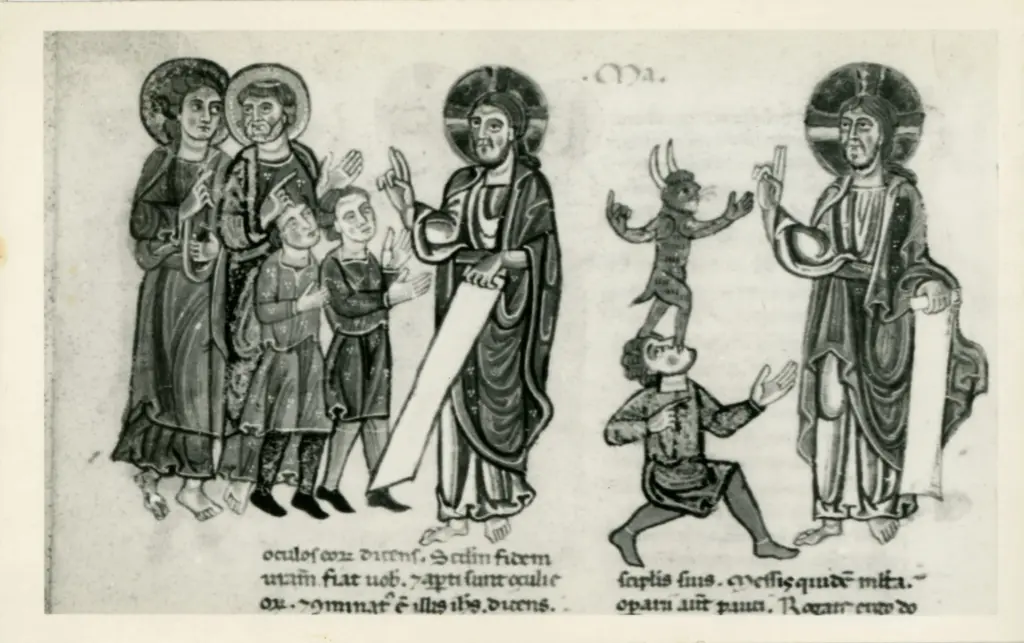 . Ma.
oculos eor dicens. Scdm fidem
uram fiat uob. 7 apti sunt oculi
or. 7 9minat ē illis ihs. dicens.
sciplis suis. Messis quidē mlta.
oparii aut pauci. Rogate ergo do